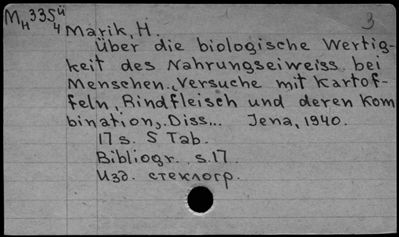 Мн 335 й/4 3
Marik, H.
Über die biologische Wertig-
keit des Nahrungseiweiss bei
Menschen. Versuche mit Kartof-
feln, Rindfleisch und deren Kom
bination. Diss... Jena, 1940.
17 s. 5 Tab.
Bibliogr. s.17.
Изд. стеклогр.